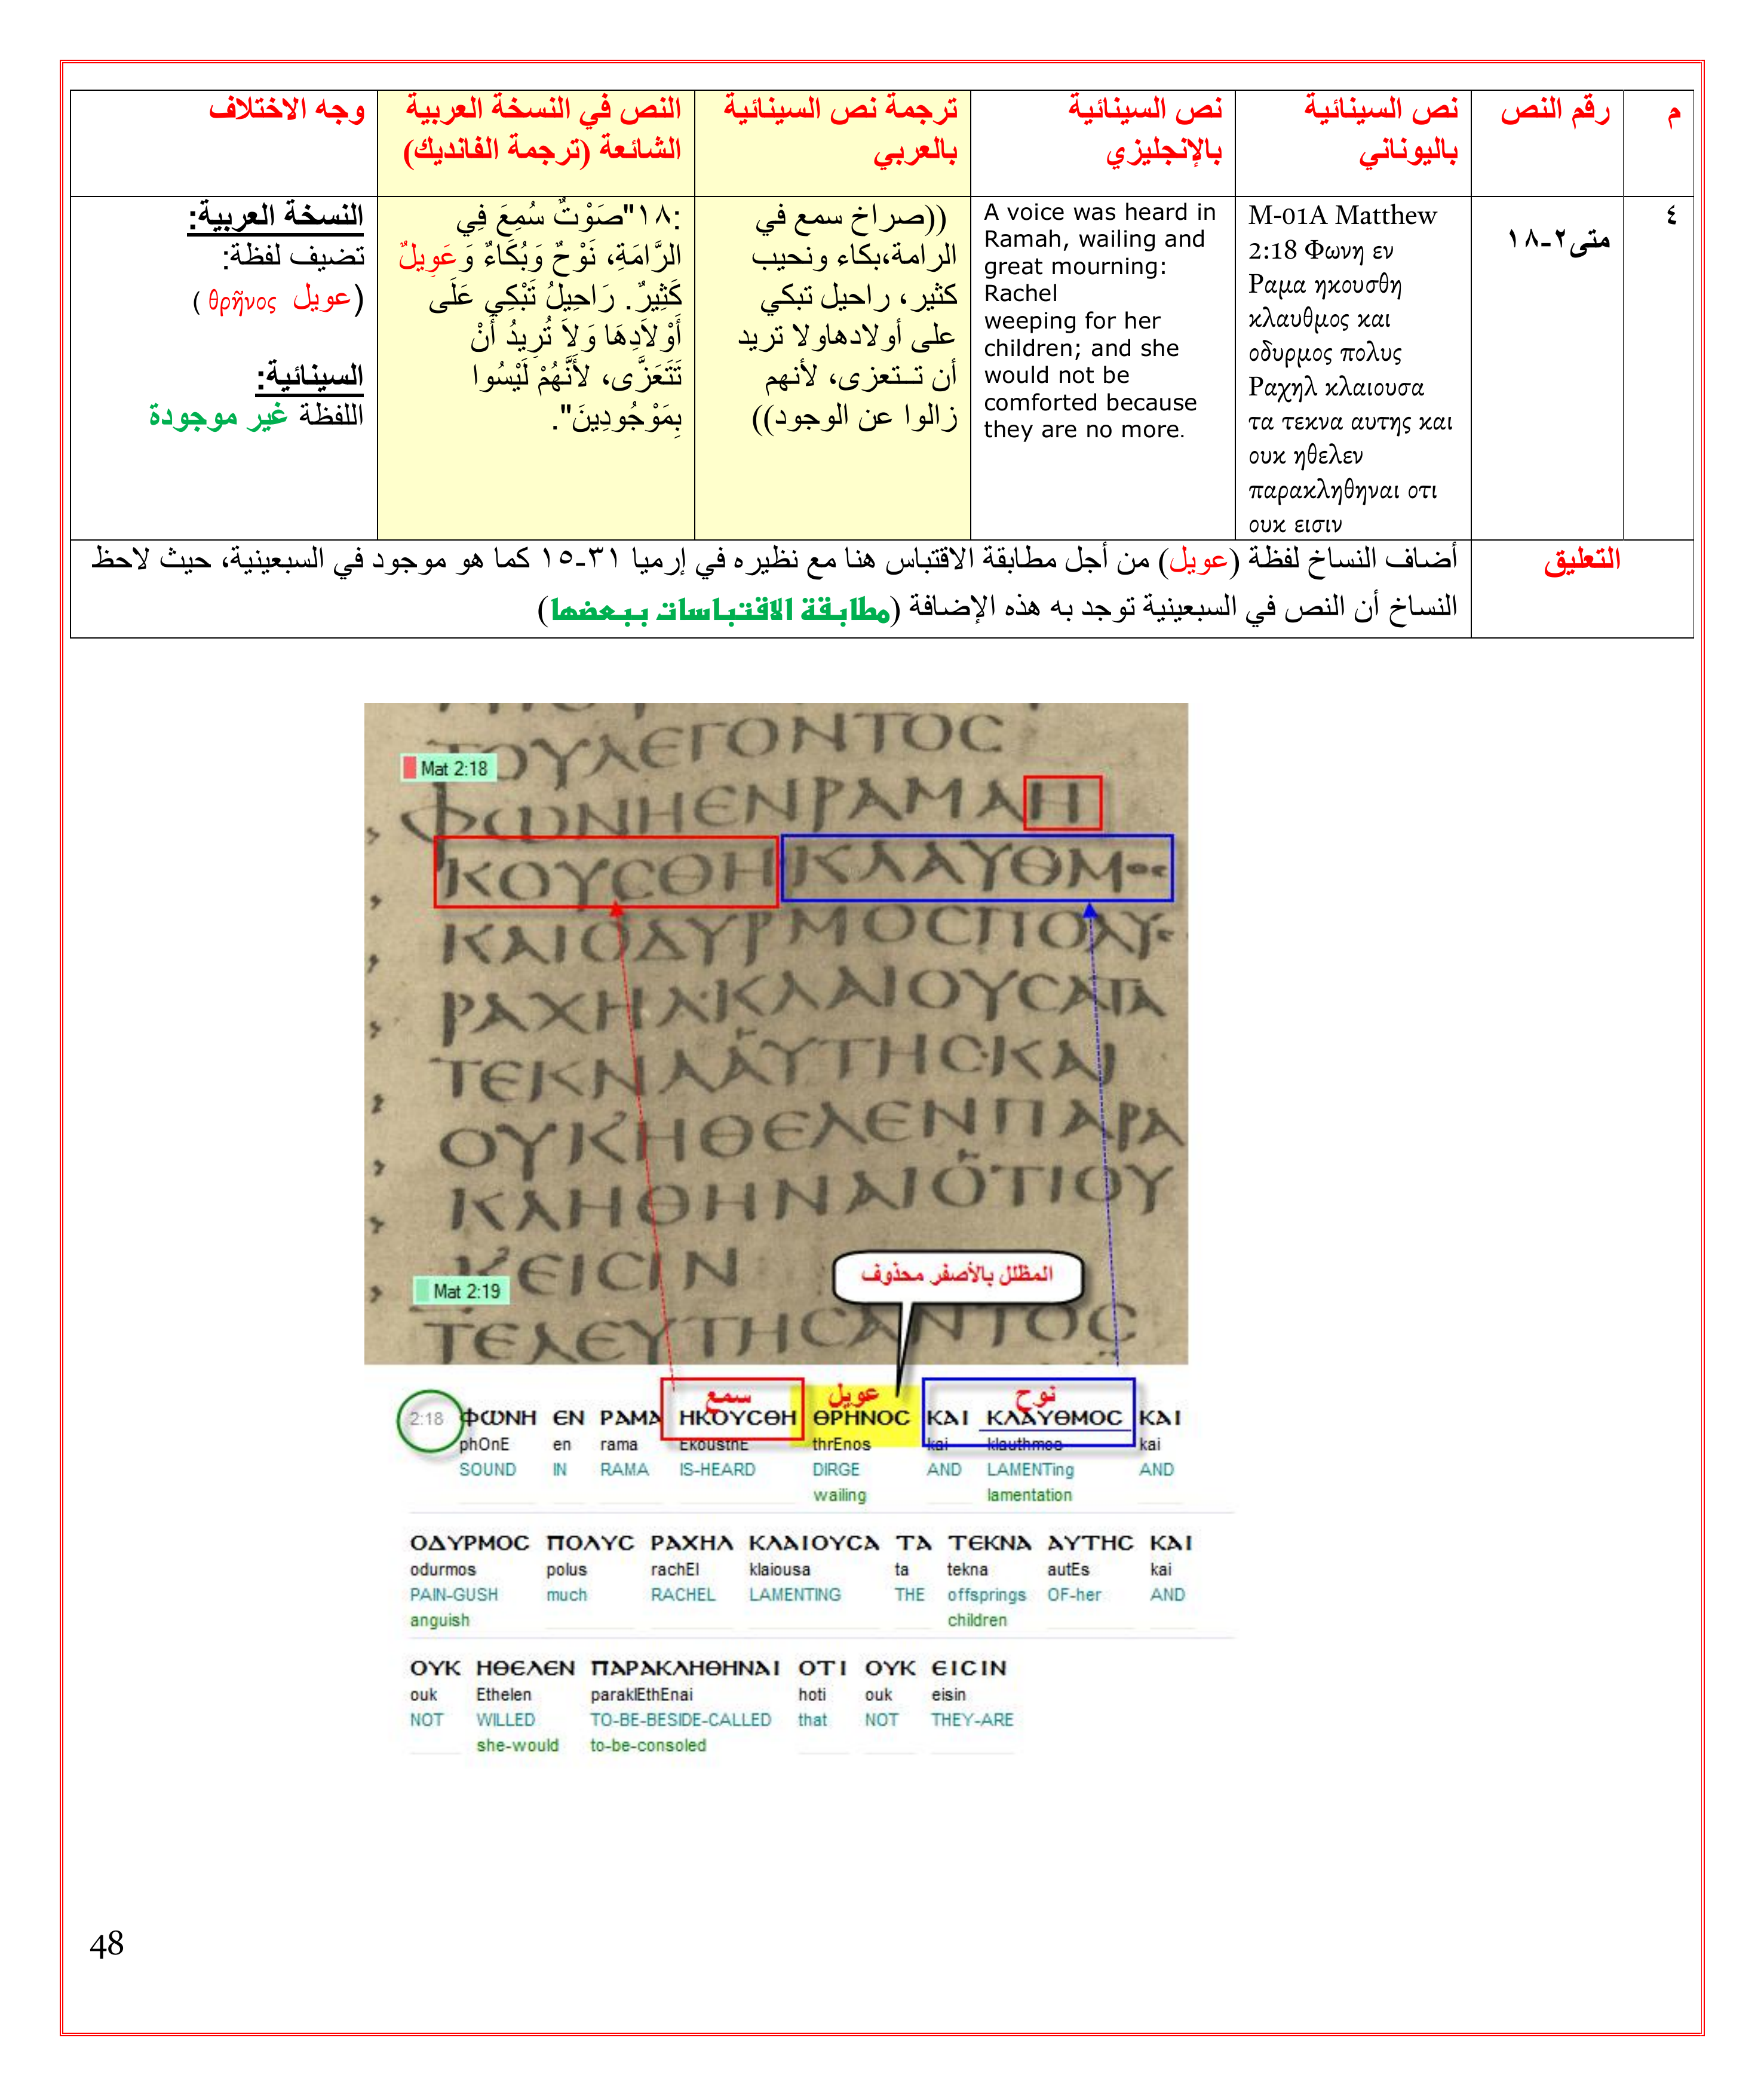 م
رقم النص
نص السينائية
باليوناني
نص السينائية
بالإنجليزي
ترجمة نص السينائية
بالعربي
النص في النسخة العربية
الشائعة (ترجمة الفانديك)
وجه الاختلاف
٤
متى٢-١٨
M-01A Matthew
2:18 Φωνη εν
Ραμα ηκουσθη
κλαυθμος και
οδυρμος πολυς
Ραχηλ κλαιουσα
τα τεκνα αυτης και
ουκ ηθελεν
παρακληθηναι οτι
ουκ εισιν
A voice was heard in
Ramah, wailing and
great mourning:
Rachel
weeping for her
children; and she
would not be
comforted because
they are no more.
((صراخ سمع في
الرامة،بكاء ونحيب
كثير، راحيل تبكي
على أولادهاولا تريد
أن تــتعزى، لأنهم
زالوا عن الوجود))
:١٨"صَوْتٌ سُمِعَ فِي
الرَّامَةِ، نَوْحٌ وَبُكَاءٌ وَعَوِيلٌ
كَثِيرٌ. رَاحِيلُ تَبْكِي عَلَى
أَوْلاَدِهَا وَلاَ تُرِيدُ أَنْ
تَتَعَزَّى، لأَنَّهُمْ لَيْسُوا
بِمَوْجُودِينَ".
النسخة العربية:
تضيف لفظة:
(عويل θρῆνος )
السينائية:
اللفظة غير موجودة
التعليق
أضاف النساخ لفظة (عويل) من أجل مطابقة الاقتباس هنا مع نظيره في إرميا ٣١-١٥ كما هو موجود في السبعينية، حيث لاحظ
النساخ أن النص في السبعينية توجد به هذه الإضافة (مطابقة الاقتباسات ببعضها)
ΤΟΥΛΕΓΟΝΤΟϹ
Mat 2:18
ΦΩΝΗΕΝΡΑΜΑΗ
ΚΟΥϹΘΗΚΛΑΥΘΜΟϹ
ΚΑΙΟΔΥΡΜΟϹΠΟΛΥϹ
ΡΑΧΗΛ·ΚΛΑΙΟΥϹΑΤΑ
ΤΕΚΝΑΑΥΤΗϹ·ΚΑΙ
ΟΥΚΗΘΕΛΕΝΠΑΡΑ
ΚΛΗΘΗΝΑΙΟΤΙΟΥ
ΚΕΙϹΙΝ
المظلل بالأصفر محذوف
Mat 2:19
ΤΕΛΕΥΤΗϹΑΝΤΟϹ
سمع عويل نوح
2:18 ΦΩΝΗ ΕΝ ΡΑΜΑ ΗΚΟΥϹΘΗ ΘΡΗΝΟϹ ΚΑΙ ΚΛΑΥΘΜΟϹ ΚΑΙ
phOnE en rama EkousthE thrEnos kai klauthmos kai
SOUND IN RAMA IS-HEARD DIRGE AND LAMENTing AND
wailing lamentation
ΟΔΥΡΜΟϹ ΠΟΛΥϹ ΡΑΧΗΛ ΚΛΑΙΟΥϹΑ ΤΑ ΤΕΚΝΑ ΑΥΤΗϹ ΚΑΙ
odurmos polus rachEl klaiousa ta tekna autEs kai
PAIN-GUSH much RACHEL LAMENTING THE offsprings OF-her AND
anguish children
ΟΥΚ ΗΘΕΛΕΝ ΠΑΡΑΚΛΗΘΗΝΑΙ ΟΤΙ ΟΥΚ ΕΙϹΙΝ
ouk Ethelen paraklEthEnai hoti ouk eisin
NOT WILLED TO-BE-BESIDE-CALLED that NOT THEY-ARE
she-would to-be-consoled
48